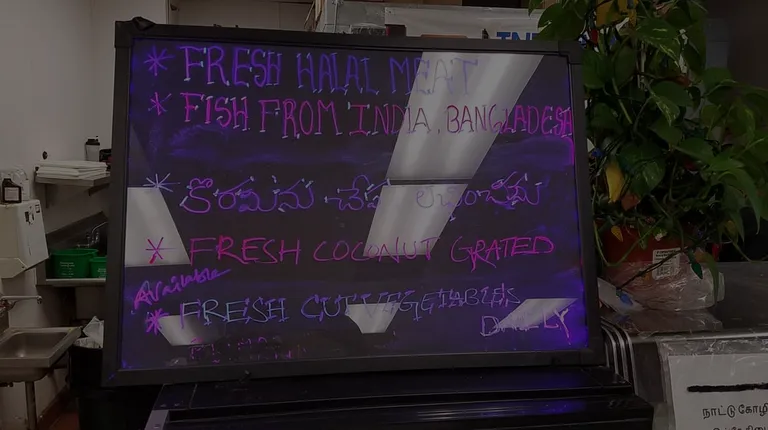 * FRESH HALAL MEAT
* FISH FROM INDIA, BANGLADESH
* కొరమేను చేప లభించును
* FRESH COCONUT GRATED
Available
* FRESH CUT VEGETABLES
DAILY
நாட்டு கோழி